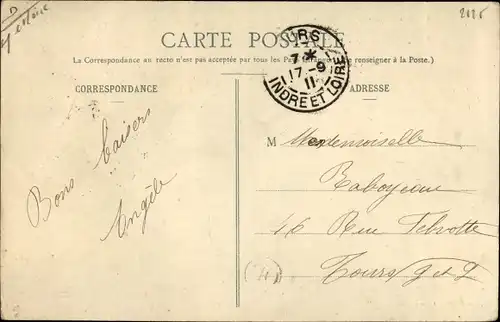 D
2025
CARTE POSTALE
La Correspondance au recto n'est pas acceptée par tous les Pays renseigner à la Poste.)
CORRESPONDANCE
ADRESSE
URS
7 *
17-9
11
INDRE ET LOIRE
Bons baisers
Angèle
M Mademoiselle
Raboyeau
46 Rue
Tours I et L